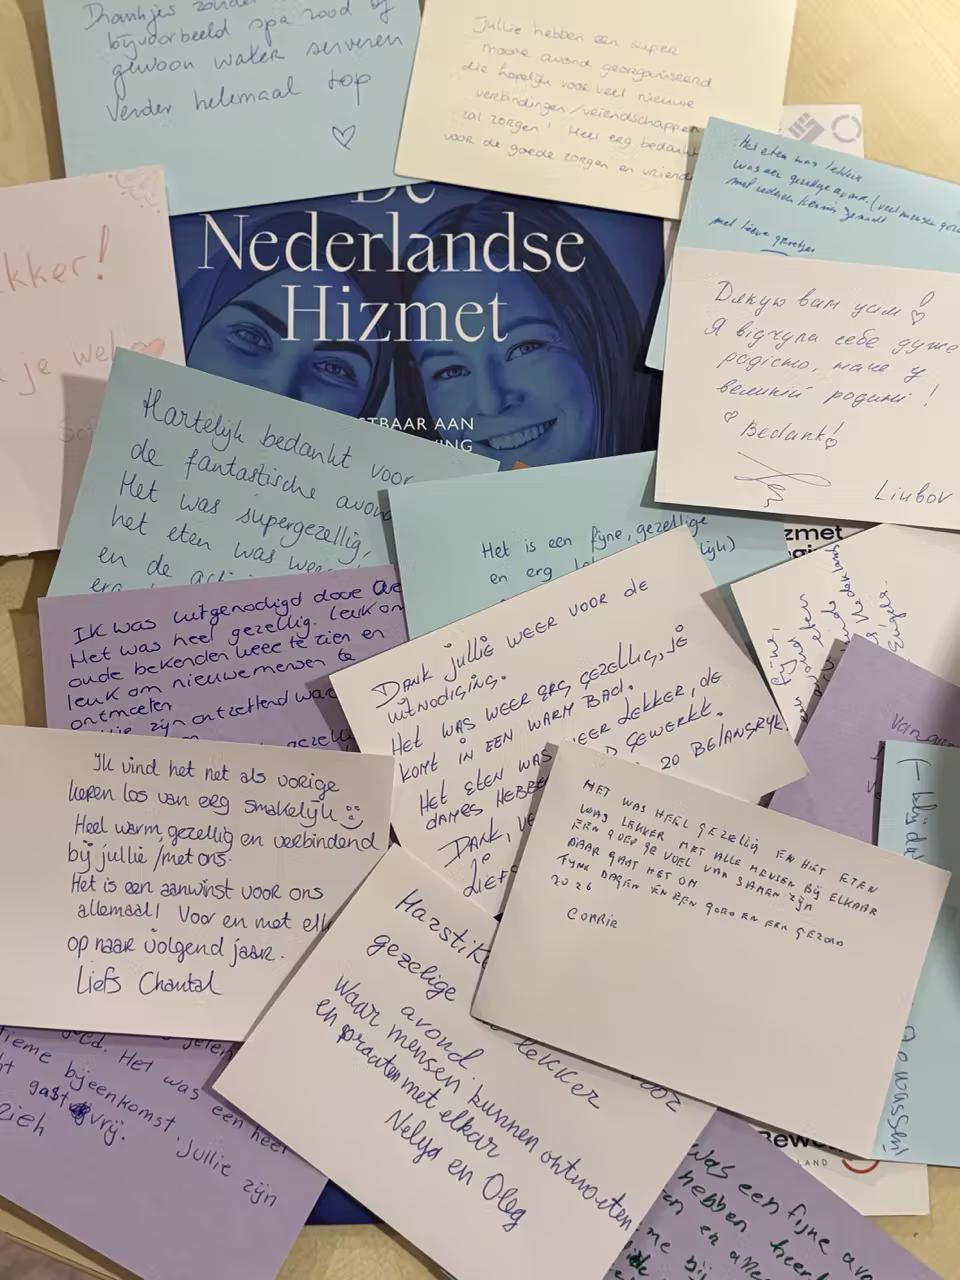 Drankjes zonder
bijvoorbeeld spa rood of
gewoon water serveren
Verder helemaal top
Jullie hebben een super
mooie avond georganiseerd
die hopelijk voor veel nieuwe
verbindingen/vriendschappen
zal zorgen! Heel erg bedankt
voor de goede zorgen en vriend
Het eten was lekker
was een gezellige
met
met lieve groetjes
kker!
je wel
De
Nederlandse
Hizmet
TBAAR AAN
ING
Дякую вам усім!
Я відчула себе дуже
радісно, наче у
великій родині!
Bedankt!
Liubov
Hartelijk bedankt voor
de fantastische avond
Het was supergezellig,
het eten was wee
en de acti
erg
Het is een fijne, gezellige
en erg lijk)
zmet
Ik was uitgenodigd door
Het was heel gezellig. Leuk om
oude bekenden weer te zien en
leuk om nieuwe mensen te
ontmoeten
zijn ontzettend
gezell
Dank jullie weer voor de
uitnodiging.
Het was weer erg gezellig, je
komt in een warm bad.
Het eten was weer lekker, de
dames hebbe gewerkt.
zo belangrijk
Dank, ve
Liefs
fijne,
avond eten
Van
Ik vind het net als vorige
keren los van erg smakelijk
Heel warm, gezellig en verbindend
bij jullie/met ons.
Het is een aanwinst voor ons
allemaal! Voor en met elk
op naar volgend jaar.
Liefs Chantal
Het was heel gezellig en het eten
was lekker met alle mensen bij elkaar
een goed gevoel van samen zijn
daar gaat het om
fijne dagen en een goed en een gezond
2026
Corrie
Harstik
gezelige
avond lekker
waar mensen kunnen ontmoeten
en praaten met elkar
Nelya en Oleg
voor
Het was een heel
tieme bijeenkomst. Jullie zijn
gastvrij.
zieh
was een fijne avo
hebben heer
en alle
me bij
Bewe
LAND